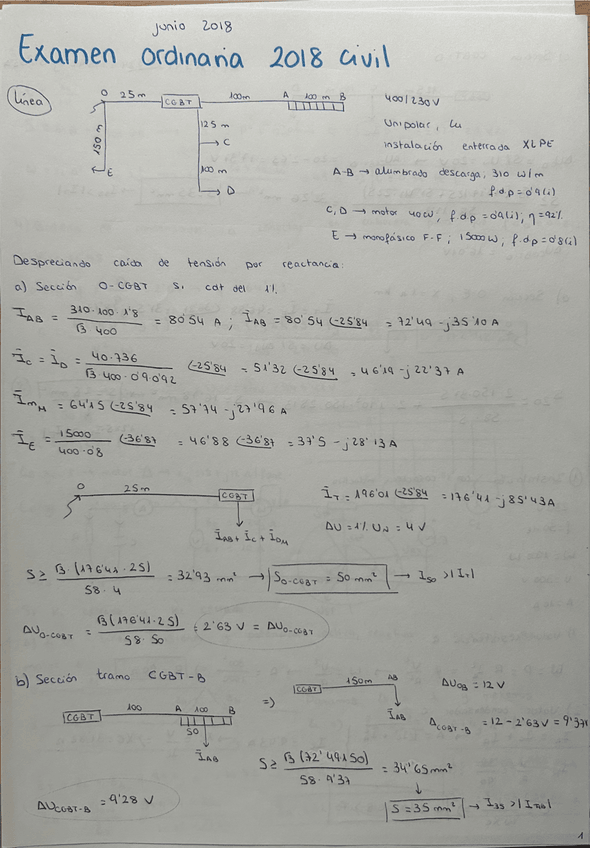 junio 2018
Examen ordinaria 2018 civil
Línea
O 25m CGBT 100m A 100 m B
400/230V
150 m
125 m
→ C
100m
→ D
E
Unipolar, Cu
instalación enterrada XLPE
A-B → alumbrado descarga, 310 W/m
f.d.p = 0'9(i)
C, D → motor 40CV, f.d.p = 0'9(i), η=92%
E → monofásico F-F; 15000W, f.d.p=0'8(i)
Despreciando caída de tensión por reactancia:
a) Sección O-CGBT si cdt del 1%
Ī_AB = 310·100·1'8 / √3 400 = 80'54 A ; Ī_AB = 80'54 ∠-25'84 = 72'49 - j35'10 A
Ī_C = Ī_D = 40·736 / √3·400·0'9·0'92 ∠-25'84 = 51'32 ∠-25'84 = 46'19 - j22'37 A
Ī_mM = 64'15 ∠-25'84 = 57'74 - j27'96 A
Ī_E = 15000 / 400·0'8 ∠-36'87 = 46'88 ∠-36'87 = 37'5 - j28'13 A
O 25m CGBT
Ī_AB + Ī_C + Ī_DM
Ī_T = 196'01 ∠-25'84 = 176'41 - j85'43A
ΔU = 1% U_N = 4 V
S ≥ √3 (176'41·25) / 58·4 = 32'93 mm² → S_O-CGBT = 50 mm² → I_50 > |I_T|
ΔU_O-CGBT = √3 (176'41·25) / 58·50 = 2'63 V = ΔU_O-CGBT
b) Sección tramo CGBT-B
CGBT 100 A 100 B
50
Ī_AB
=)
CGBT 150m AB
Ī_AB
ΔU_OB = 12 V
Δ_CGBT-B = 12 - 2'63 V = 9'37V
S ≥ √3 (72'49·150) / 58·9'37 = 34'65 mm²
S = 35 mm² → I_35 > |I_AB|
ΔU_CGBT-B = 9'28 V
1